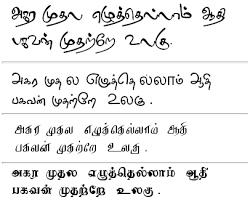 அகர முதல எழுத்தெல்லாம் ஆதி
பகவன் முதற்றே உலகு.
அகர முதல எழுத்தெல்லாம் ஆதி
பகவன் முதற்றே உலகு .
அகர முதல எழுத்தெல்லாம் ஆதி
பகவன் முதற்றே உலகு .
அகர முதல எழுத்தெல்லாம் ஆதி
பகவன் முதற்றே உலகு .